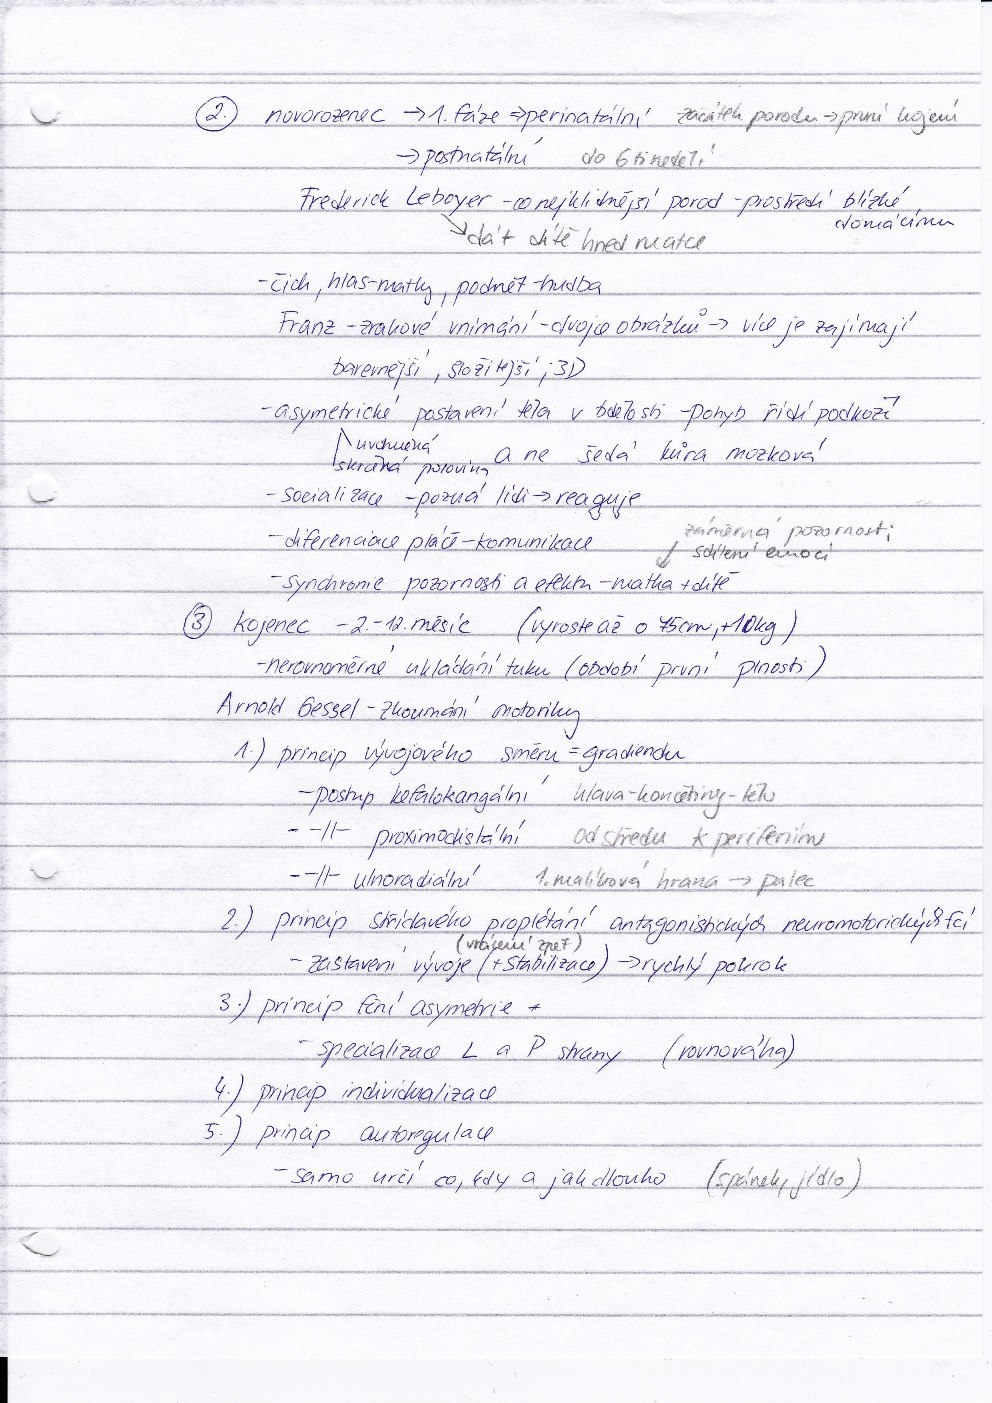 2. novorozenec → 1. fáze ⇒ perinatální začátek porodu → první kojení
→ postnatální do 6ti neděl í
Frederick Leboyer - co nejklidnější porod - prostředí blízké
domácímu
↘ dát dítě hned matce
- čich, hlas-matky, podnět-hudba
Franz - zrakové vnímání - dvojce obrázků → více je zajímají
barevnější, složitější, 3D
- asymetrické postavení těla v bdělosti - pohyb řídí podkoží
uvolněná
skrčná polovina a ne šedá kůra mozková
- socializace - pozná lidi → reaguje
záměrná pozornost;
- diferenciace pláče - komunikace
sdílení emocí
- synchronie pozornosti a efektu - matka + dítě
3 kojenec - 2.-12. měsíc (vyroste až o 75cm, +10kg)
- nerovnoměrné ukládání tuku (období první plnosti)
Arnold Gessel - zkoumání motoriky
1.) princip vývojového směru = gradiendu
- postup kefalokangální hlava-končetiny-tělo
- -||- proximodistální od středu k periferiím
- -||- ulnoradiální 1. malíková hrana → palec
2.) princip střídavého proplétání antagonistických neuromotorických fcí
(vrácení zpět)
- zastavení vývoje (+stabilizace) → rychlý pokrok
3.) princip fční asymetrie +
- specializace L a P strany (rovnováha)
4.) princip individualizace
5.) princip autoregulace
- samo určí co, kdy a jak dlouho (spánek, jídlo)